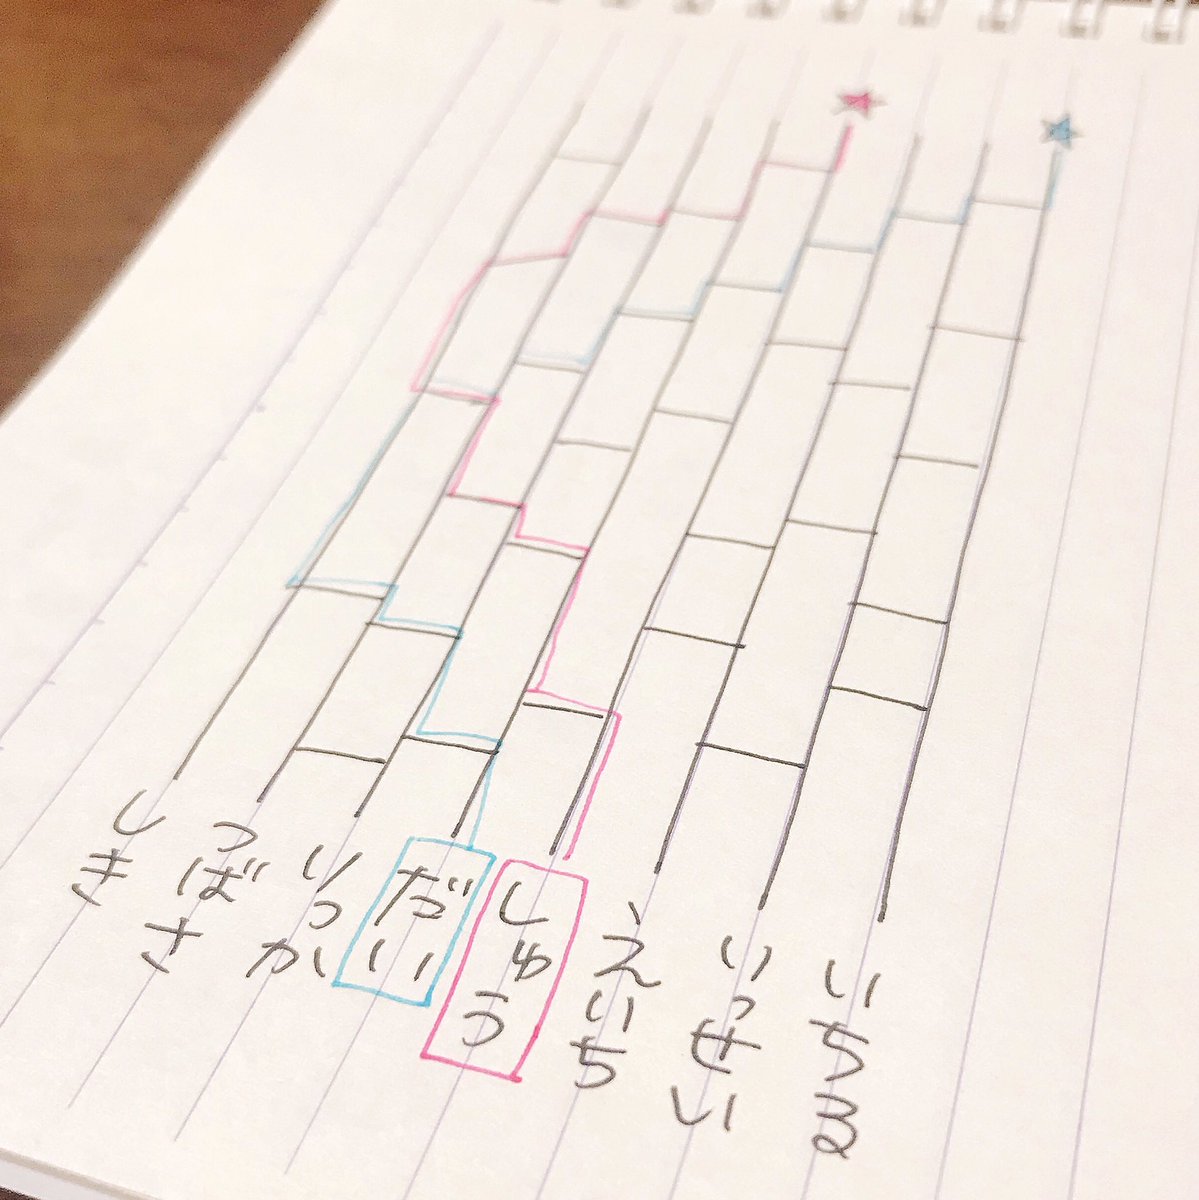 しき
つばさ
りっか
だい
しゅう
えいち
いっせい
いちる